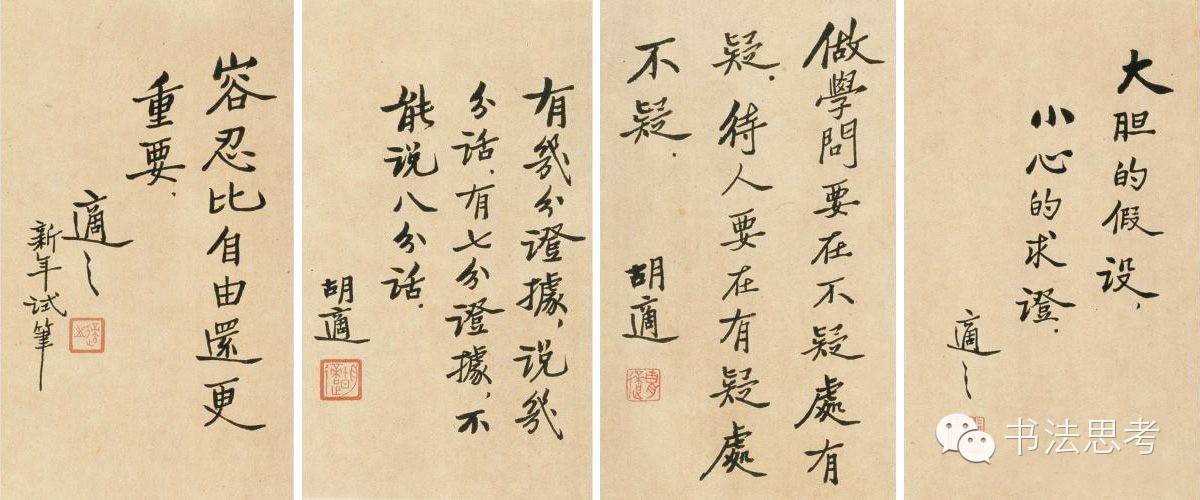 大胆的假设，
小心的求證．
適之
做學問要在不疑處有
疑．待人要在有疑處
不疑．
胡適
有幾分證據，说幾
分话．有七分證據，不
能说八分话．
胡適
容忍比自由還更
重要．
適之
新年试筆
书法思考